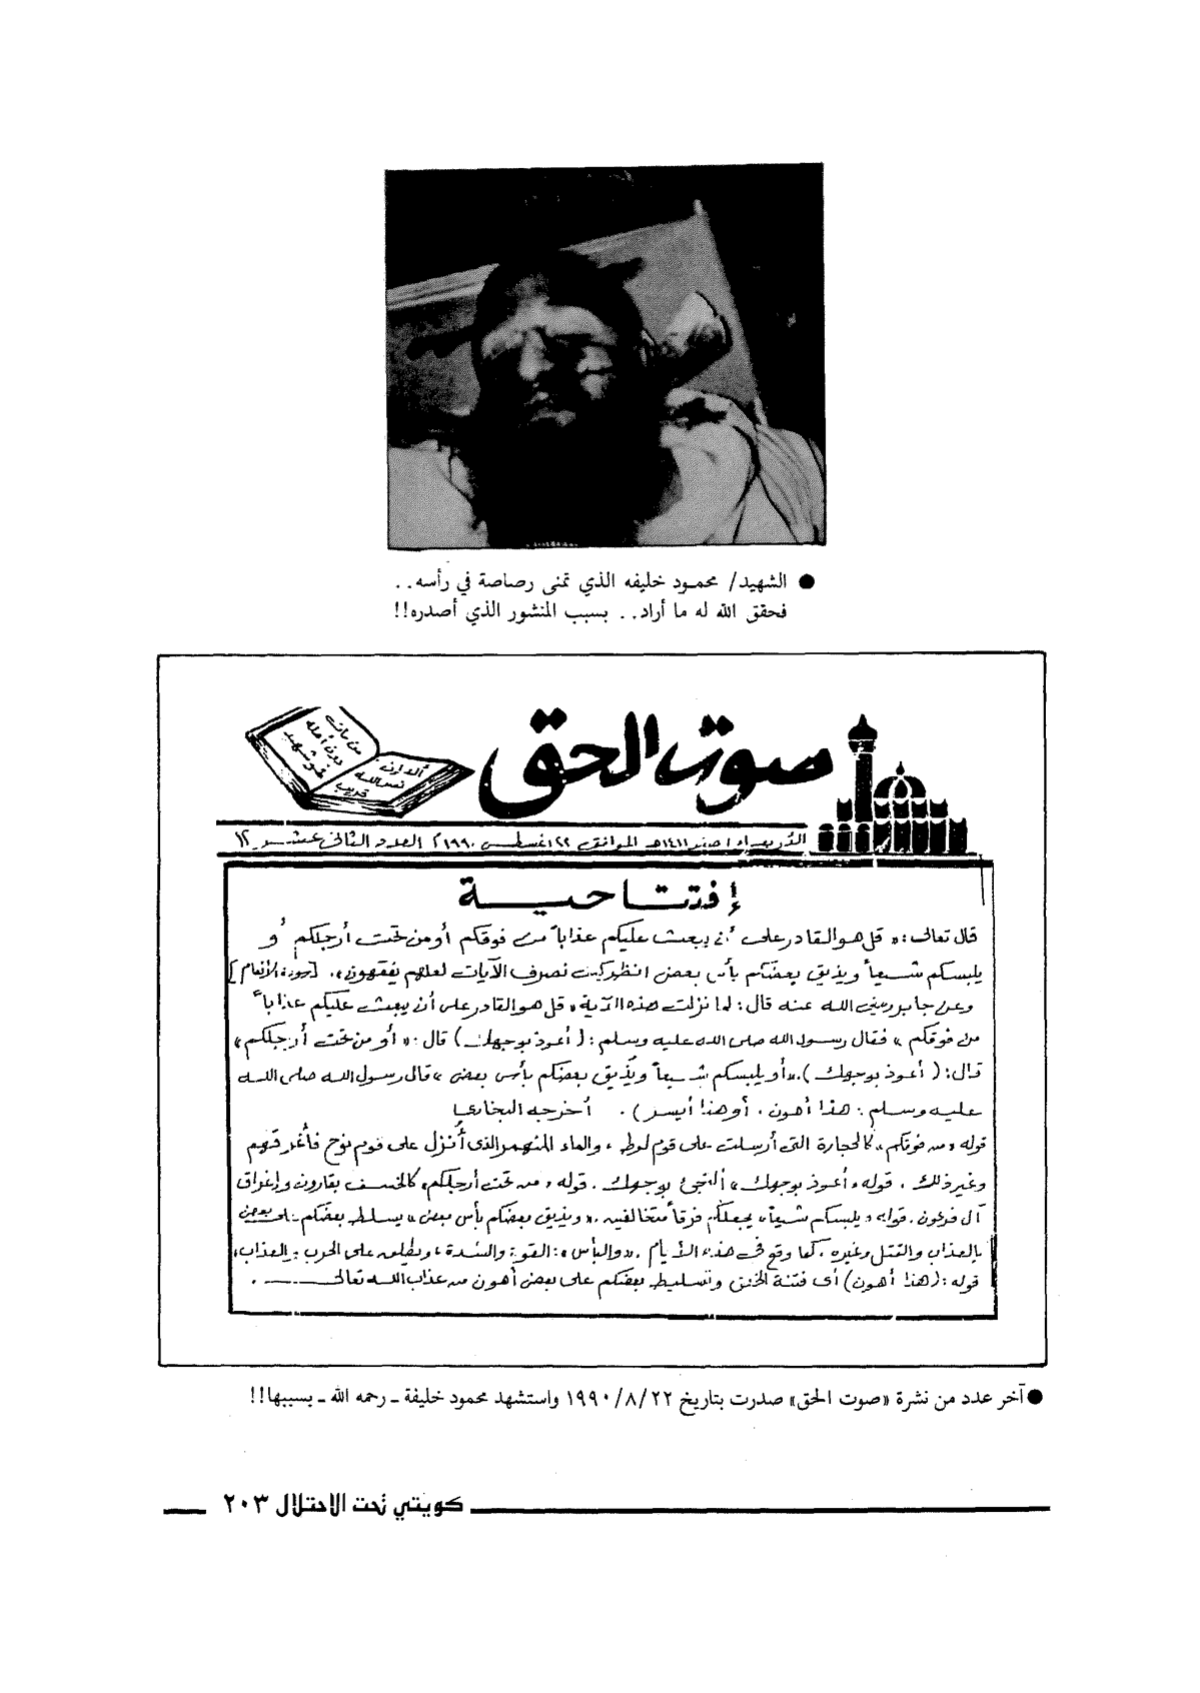 ● الشهيد/ محمود خليفه الذي تمنى رصاصة في رأسه..
فحقق الله له ما أراد.. بسبب المنشور الذي أصدره!!
من مات
دون أهله
فهو شهيد
ألا إن
نصر الله
قريب
صوت الحق
الأربعاء ١ صفر ١٤١١هـ الموافق ٢٢ اغسطس ١٩٩٠م العدد الثاني عشر ١٢
إفتتاحية
قال تعالى: « قل هو القادر على أن يبعث عليكم عذاباً من فوقكم أو من تحت أرجلكم أو
يلبسكم شيعاً ويذيق بعضكم بأس بعض انظر كيف نصرف الآيات لعلهم يفقهون». [سورة الأنعام]
وعن جابر رضي الله عنه قال: لما نزلت هذه الآية « قل هو القادر على أن يبعث عليكم عذاباً
من فوقكم » فقال رسول الله صلى الله عليه وسلم: ( أعوذ بوجهك ) قال: « أو من تحت أرجلكم »
قال: ( أعوذ بوجهك ). « أو يلبسكم شيعاً ويذيق بعضكم بأس بعض » قال رسول الله صلى الله
عليه وسلم: هذا أهون. أو هذا أيسر ). أخرجه البخاري
قوله « من فوقكم » كالحجارة التي أرسلت على قوم لوط، والماء المنهمر الذي أُنزل على قوم نوح فأغرقهم
وغير ذلك. قوله « أعوذ بوجهك » ألتجئ بوجهك. قوله « من تحت أرجلكم » كالخسف بقارون وإغراق
آل فرعون. قوله « يلبسكم شيعاً » يجعلكم فرقاً متخالفين. « ويذيق بعضكم بأس بعض » يسلط بعضكم على بعض
بالعذاب والقتل وغيره، كما وقع في هذه الأيام. « والبأس »: القوة والشدة، ويطلق على الحرب والعذاب،
قوله: (هذا أهون) أي فتنة الخلق وتسليط بعضكم على بعض أهون من عذاب الله تعالى.
● آخر عدد من نشرة «صوت الحق» صدرت بتاريخ ١٩٩٠/٨/٢٢ واستشهد محمود خليفة ـ رحمه الله ـ بسببها!!
كويتي تحت الاحتلال ٢٠٣